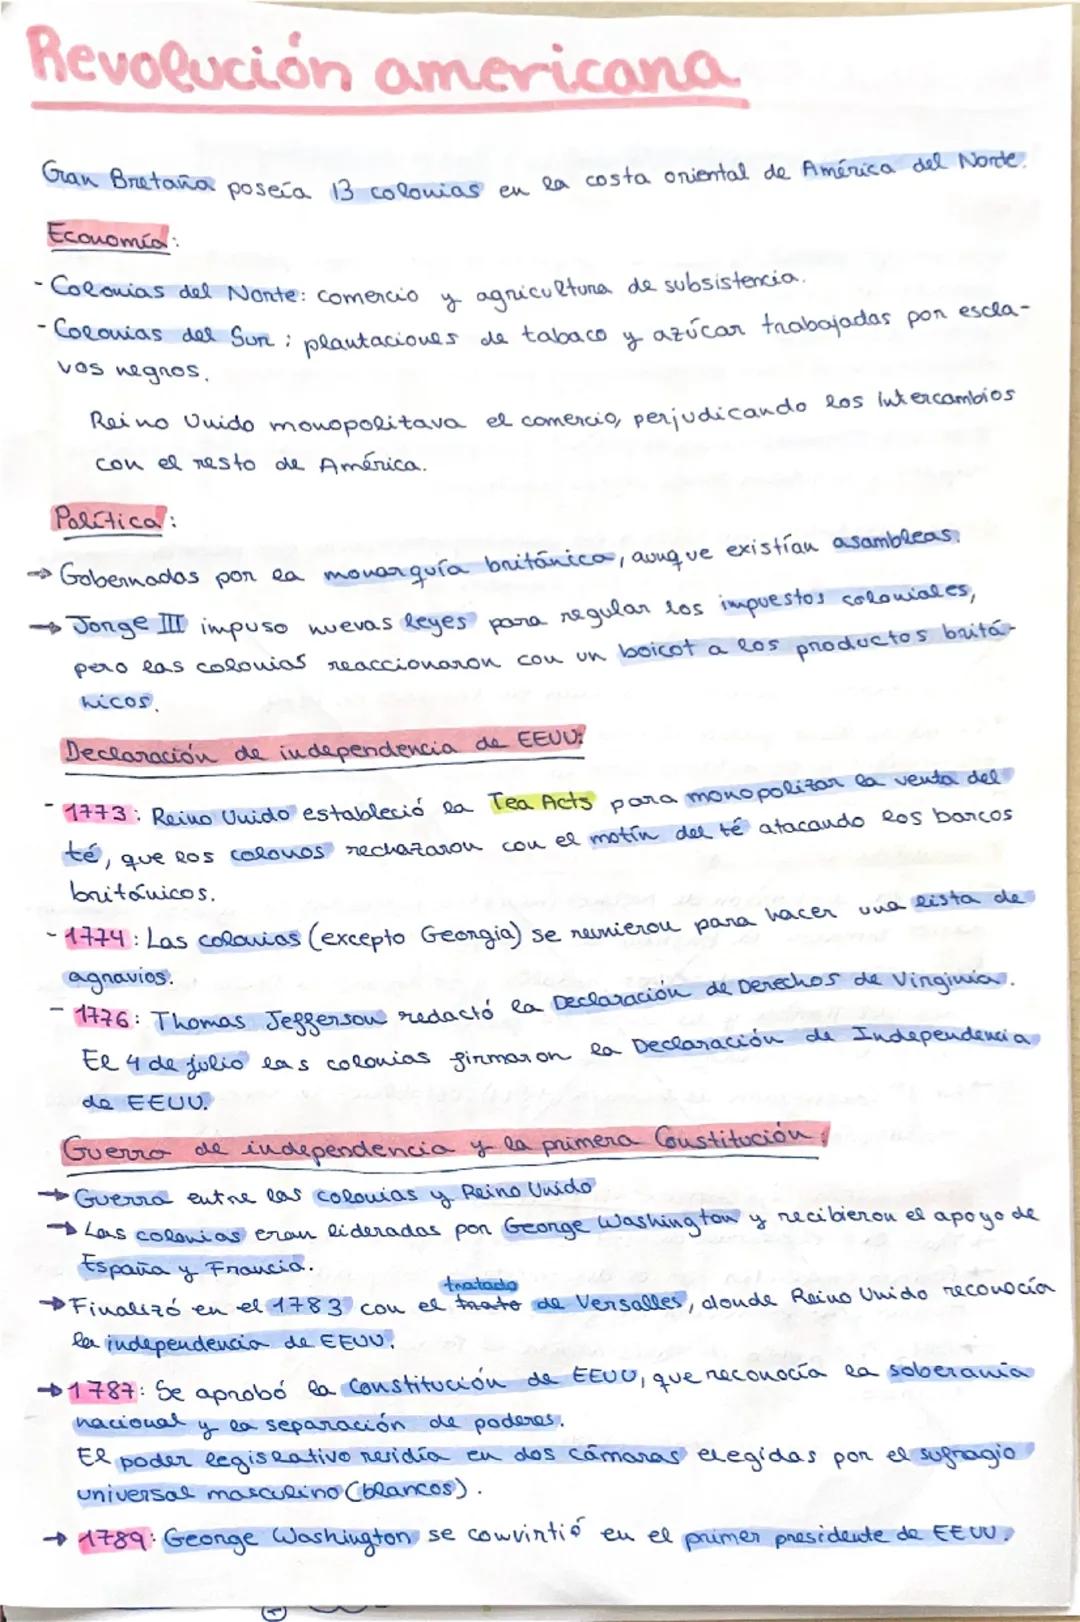 Revolución americana
Gran Bretaña poseía 13 colonias en la costa oriental de América del Norte.
Economía:
- Colonias del Norte: comercio y agricultura de subsistencia.
- Colonias del Sur: plantaciones de tabaco y azúcar trabajadas por escla-
vos negros.
Reino Unido monopolitava el comercio, perjudicando los intercambios
con el resto de América.
Política:
→ Gobernadas por la monarquía británica, aunque existían asambleas.
→ Jorge III impuso nuevas leyes para regular los impuestos coloniales,
pero las colonias reaccionaron con un boicot a los productos britá-
nicos.
Declaración de independencia de EEUU:
- 1773: Reino Unido estableció la Tea Acts para monopolizar la venta del
té, que los colonos rechazaron con el motín del té atacando los barcos
británicos.
- 1774: Las colonias (excepto Georgia) se reunieron para hacer una lista de
agravios.
- 1776: Thomas Jefferson redactó la Declaración de Derechos de Virginia.
El 4 de julio las colonias firmaron la Declaración de Independencia
de EEUU.
Guerra de independencia y la primera Constitución:
→ Guerra entre las colonias y Reino Unido
→ Las colonias eran lideradas por George Washington y recibieron el apoyo de
España y Francia.
tratado
→ Finalizó en el 1783 con el trato de Versalles, donde Reino Unido reconocía
la independencia de EEUU.
→ 1787: Se aprobó la Constitución de EEUU, que reconocía la soberanía
nacional y la separación de poderes.
El poder legislativo residía en dos cámaras elegidas por el sufragio
universal masculino (blancos).
→ 1789: George Washington se convirtió en el primer presidente de EEUU.